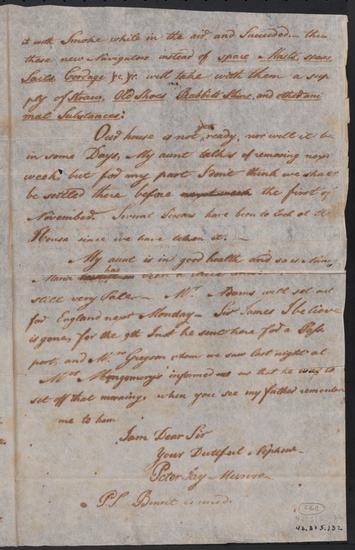 it with Smoke while in the air, and Succeeded — then
these new Navigators instead of spare Masts, spars,
Sails Cordage &c &c will take with them a sup
ply of Straw, Old Shoes Rabbits Skins, and other ani
mal Substances.
Our house is not yet ready, nor will it be
in some Days, My aunt talks of removing next
week but for my part I don't think we shall
be settled there before next week the first of
November. Several Persons have been to look at the
House since we have taken it. —
My aunt is in good health and so is Nancy,
Maria has been a
still very Pale — Mr. Adams will set out
for England next Monday — Sir James I believe
is gone, for the 9th Inst he sent here for a Pass
port, and Mr. Grigson whom we saw last night at
Mrs Montgomery's informed us that he was to
set off that morning. when you see my father remember
me to him
I am Dear Sir
Your Dutiful Nephew
Peter Jay Munro
P.S. Benoit is cured.